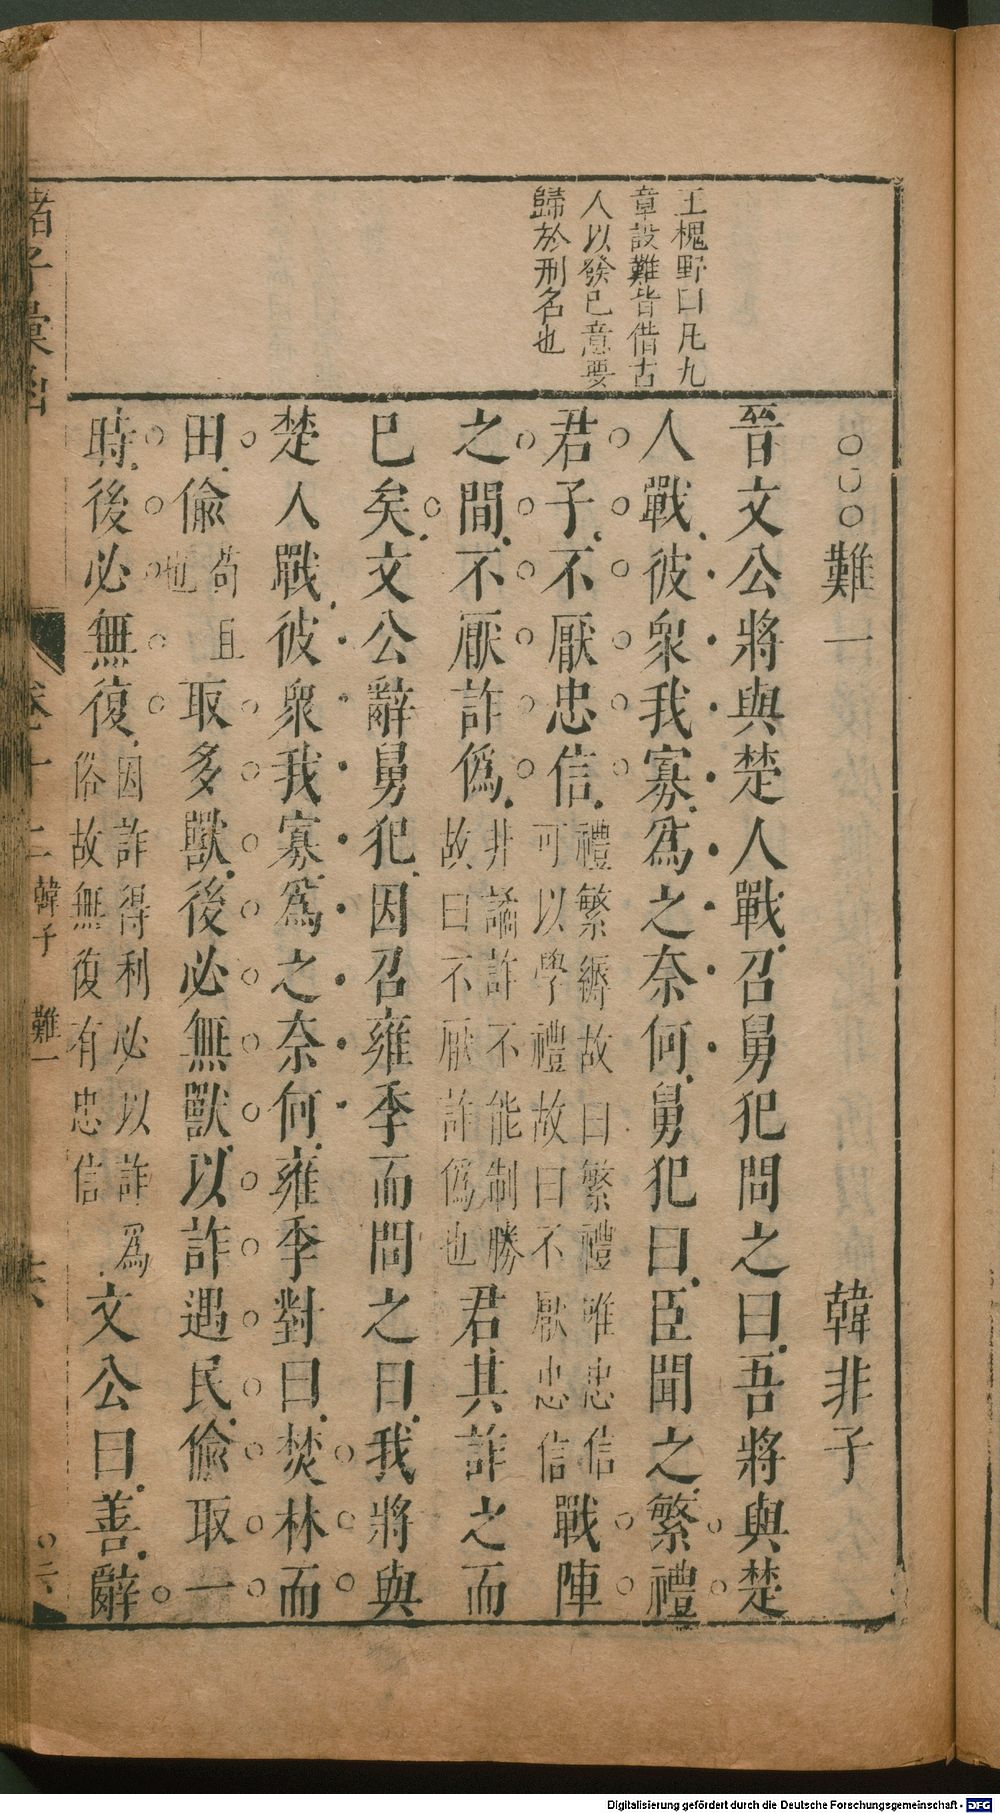 王槐野曰凡九
章設難皆借古
人以發已意要
歸於刑名也
○○○難一 韓非子
晉文公將與楚人戰召舅犯問之曰吾將與楚
人戰彼衆我寡爲之奈何舅犯曰臣聞之繁禮
君子不厭忠信禮繁縟故曰繁禮唯忠信可以學禮故曰不厭忠信戰陣
之間不厭詐僞非譎詐不能制勝故曰不厭詐僞也君其詐之而
已矣文公辭舅犯因召雍季而問之曰我將與
楚人戰彼衆我寡爲之奈何雍季對曰焚林而
田偷苟且也取多獸後必無獸以詐遇民偷取一
時後必無復因詐得利必以詐爲俗故無復有忠信文公曰善辭
諸子彙函
卷十二 韓子 難一
Digitalisierung gefördert durch die Deutsche Forschungsgemeinschaft - DFG